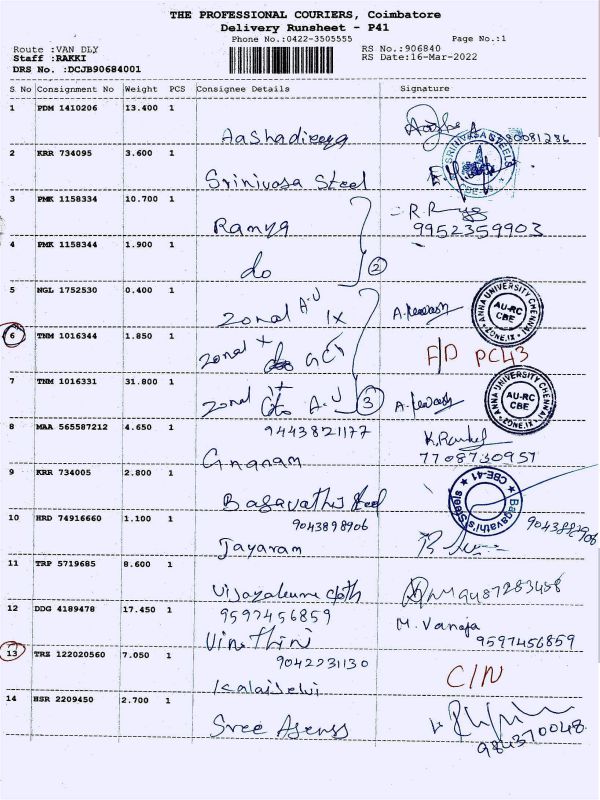 THE PROFESSIONAL COURIERS, Coimbatore
Delivery Runsheet - P41
Phone No.:0422-3505555
Page No.:1
Route :VAN DLY
RS No.:906840
Staff :RAKKI
RS Date:16-Mar-2022
DRS No. :DCJB90684001
S No Consignment No Weight PCS Consignee Details Signature
1 PDM 1410206 13.400 1
2 KRR 734095 3.600 1
SRINIVASA STEELS
Srinivasa Steel
3 PMK 1158334 10.700 1
Ramya R.
9952359903
4 PMK 1158344 1.900 1
do 2
5 NGL 1752530 0.400 1
Zonal A.U IX
ANNA UNIVERSITY CHENNAI
AU-RC
CBE
ZONE.IX
6 TNM 1016344 1.850 1
Zonal X GCT F/D PC43
7 TNM 1016331 31.800 1
Zonal IX A.U 3
ANNA UNIVERSITY CHENNAI
AU-RC
CBE
ZONE.IX
8 MAA 565587212 4.650 1 9443821177
Gnanam
7708730957
9 KRR 734005 2.800 1
Bagavathi Steel
Bagavathi's Steels
CBE-41
10 HRD 74916660 1.100 1 9043898906
Jayaram
11 TRP 5719685 8.600 1
Vijayalaxmi cloth
12 DDG 4189478 17.450 1 9597456859 M. Vanaja
Vinothini 9597456859
13 TRZ 122020560 7.050 1 9042231130
Kalaiselvi C/N
14 HSR 2209450 2.700 1
Sree